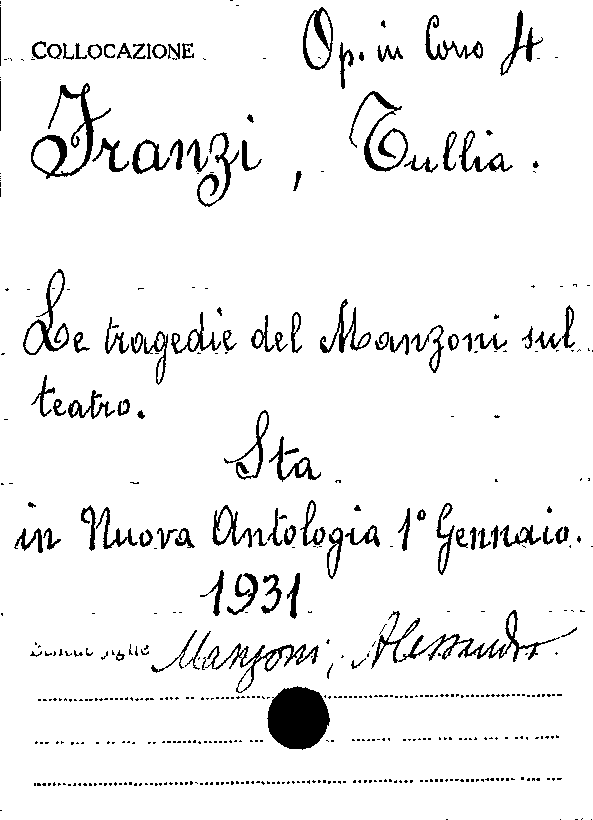 COLLOCAZIONE Op. in Corso
Franzi, Tullia.
Le tragedie del Manzoni sul
teatro.
Sta
in Nuova Antologia 1° Gennaio.
1931
Manzoni, Alessandro.